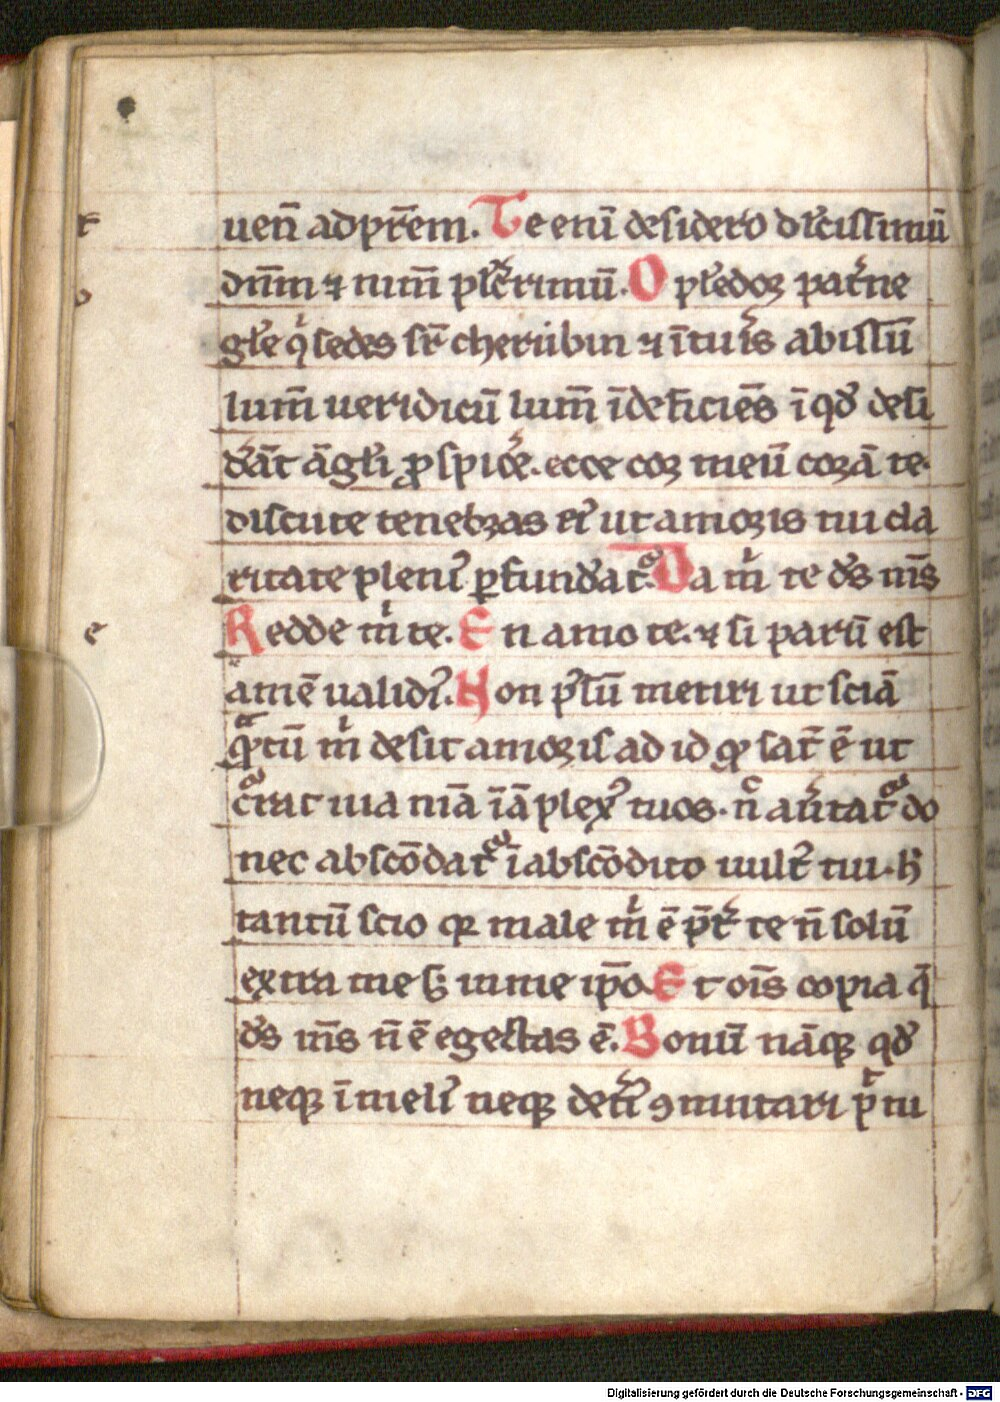 uen̄ ad pr̄em. Te eni̅ desidero dl̓cissimu̅
dn̄m ⁊ nim̄ pl̓cͥrimu̅. O pl̓edor pat̓ne
gl̓e qͥ sedes sr̄ cherubin ⁊ i̅tu̓is abissu̅
lum̄ ueridicu̅ lum̄ i̅deficie̅s i̅ qd̓ desi
d̓a̅t a̅gl̓i ꝓspic̓e. ecce cor meu̅ cora̅ te.
discute tenebras ei̓ ut amoris tui cla
ritate pleni̓ ꝑfund̓atᷣ. Da mͥ te d̓s m̄s
Redde mͥ te. En amo te. ⁊ si paru̅ est
ame̅ ualidi̓. Non p̓su̅ metiri ut scia̅
qᷓtu̅ mͥ desit amoris ad id qͦ sat̄ e̅ ut
cᷣrat uia m̄a i̅ a̅plex̓ tuos. nͨ au̓tatᷣ do
nec absco̅datᷣ i̅ absco̅dito uult̓ tui. h̓
tantu̅ scio qꝛ male mͥ e̅ p̄t̓ te n̄ solu̅
extra me s; in me ip̄o Et oi̅s copia q̄
d̓s m̄s n̄ e̅ egestas e̅. Bonu̅ na̅qꝫ qd̓
neqꝫ i̅ meli̓ neqꝫ det̓i̓ ꝯmutari pͭ tu
e
Digitalisierung gefördert durch die Deutsche Forschungsgemeinschaft - DFG